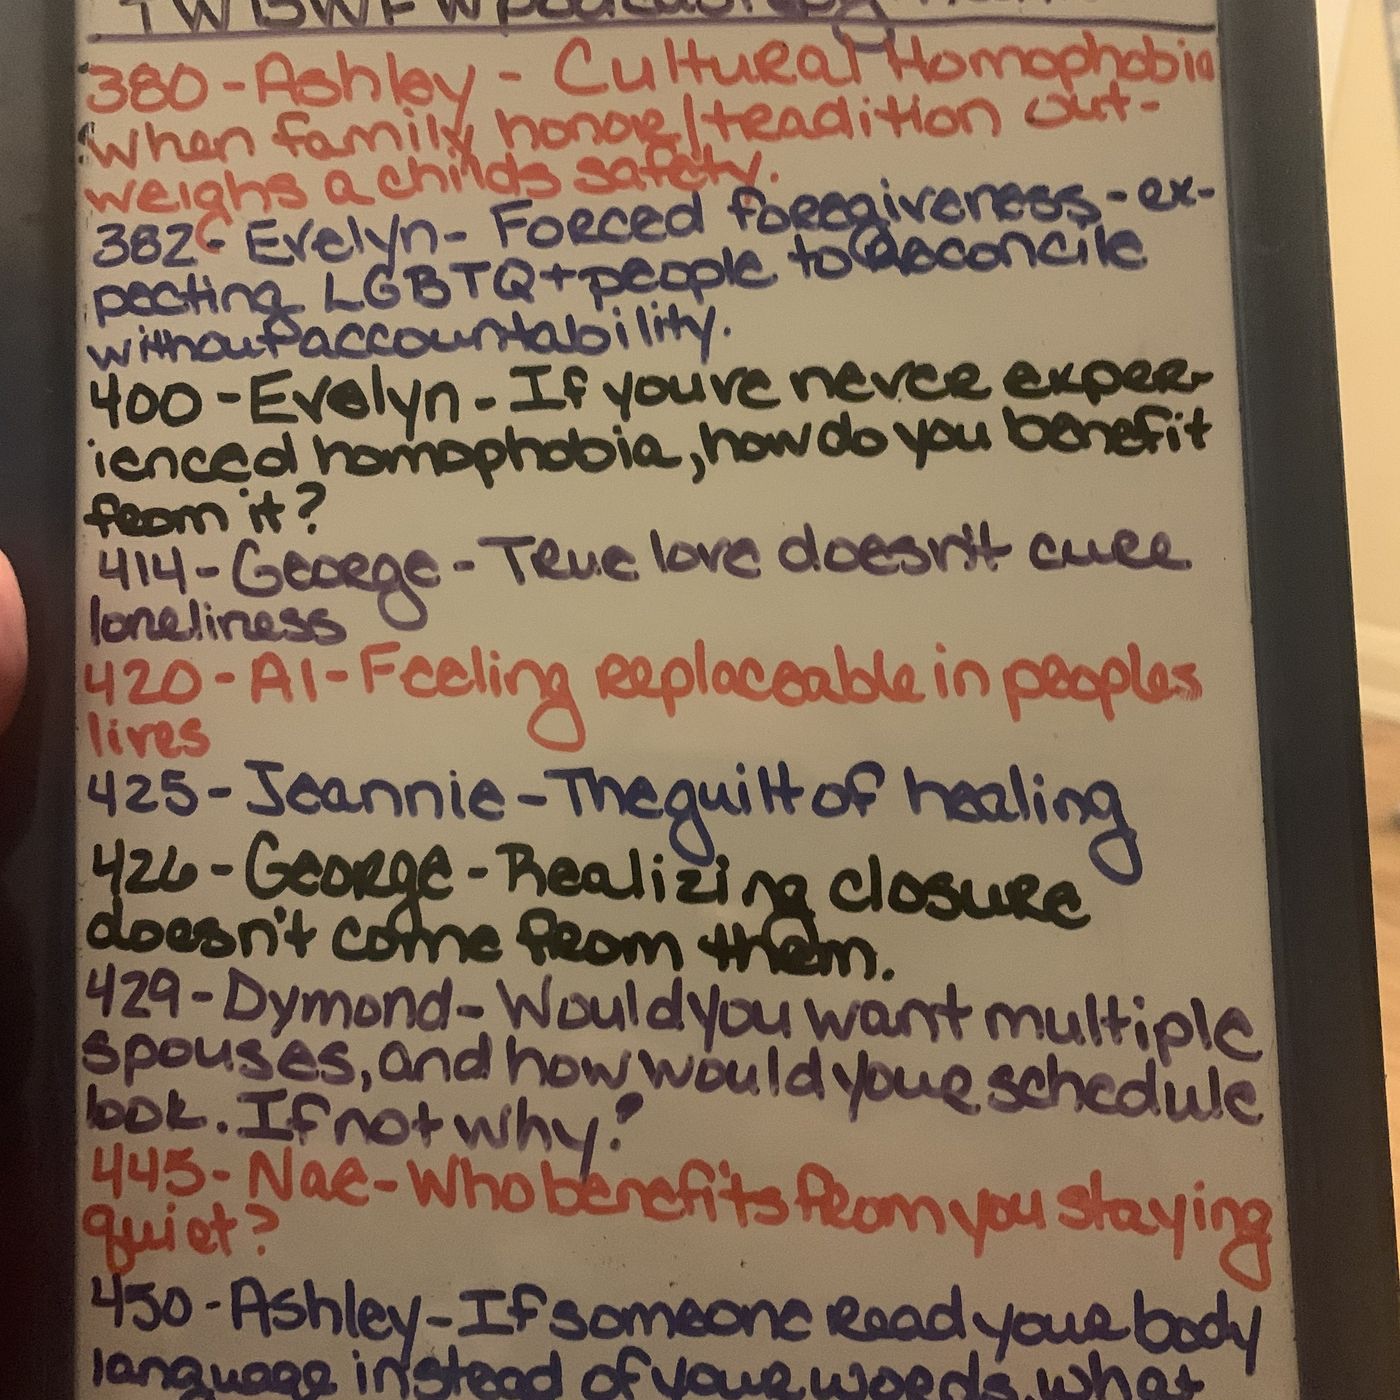 TWBWFW podcast
380-Ashley - Cultural Homophobia
when family honor/tradition out-
weighs a childs safety.
382- Evelyn- Forced forgiveness-ex-
pecting LGBTQ+ people to reconcile
without accountability.
400-Evelyn-If youve never exper-
ienced homophobia, how do you benefit
from it?
414-George-True love doesn't cure
loneliness
420-Al-Feeling replaceable in peoples
lives
425-Jeannie-The guilt of healing
426-George-Realizing closure
doesn't come from them.
429-Dymond-Would you want multiple
spouses, and how would your schedule
look. If not why?
445-Nae-Who benefits from you staying
quiet?
450-Ashley-If someone read your body
language instead of your words, what